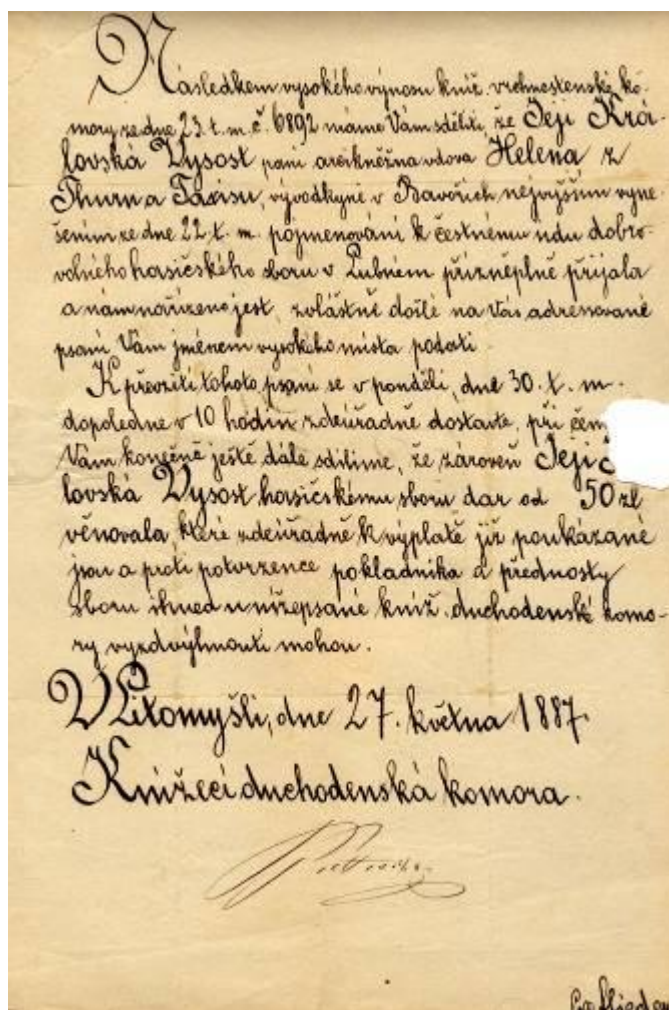 Následkem vysokého výnosu kníž. vrchnostenské ko-
mory ze dne 23. t. m. č. 6892 máme Vám sděliti, že Její Krá-
lovská Vysost paní arcikněžna vdova Helena z
Thurn a Taxisu, vývodkyně v Bavořích nejvyšším vyne-
šením ze dne 22. t. m. pojmenování k čestnému údu dobro-
volného hasičského sboru v Lubném přízněplně přijala
a nám nařízeno jest, zvláštně došlé na Vás adressované
psaní Vám jménem vysokého místa podati.
K převzetí tohoto psaní se v pondělí, dne 30. t. m.
dopoledne v 10 hodin zdeúřadně dostavte, při čem
Vám konečně ještě dále sdílíme, že zároveň Její
lovská Vysost hasičskému sboru dar od 50 zl
věnovala, které zdeúřadně k výplatě již poukázané
jsou a proti potvrzence pokladníka a přednosty
sboru ihned u nížepsané kníž. duchodenské komo-
ry vyzdvihnouti mohou.
V Litomyšli, dne 27. května 1887.
Knížecí duchodenská komora.